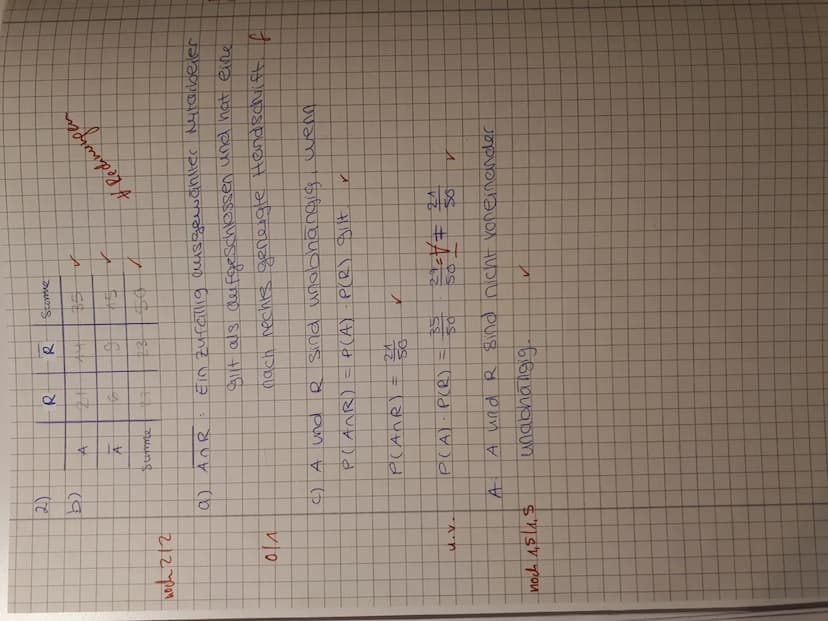 2)
b)
R R̅ Summe
A 21 14 35 ✓
A̅ 6 9 15 ✓
Summe 27 23 50 ✓
+ Rechnungen
noch 2/2
a) A∩R : Ein zufällig ausgewählter Mitarbeiter
gilt als aufgeschlossen und hat eine
nach rechts geneigte Handschrift. f
0/1
c) A und R sind unabhängig, wenn
P(A∩R) = P(A) · P(R) gilt. ✓
P(A∩R) = 21/50 ✓
P(A) · P(R) = 35/50 · 27/50 ≠ 21/50 ✓
u.v.
A: A und R sind nicht voneinander
unabhängig. ✓
noch 1,5/1,5